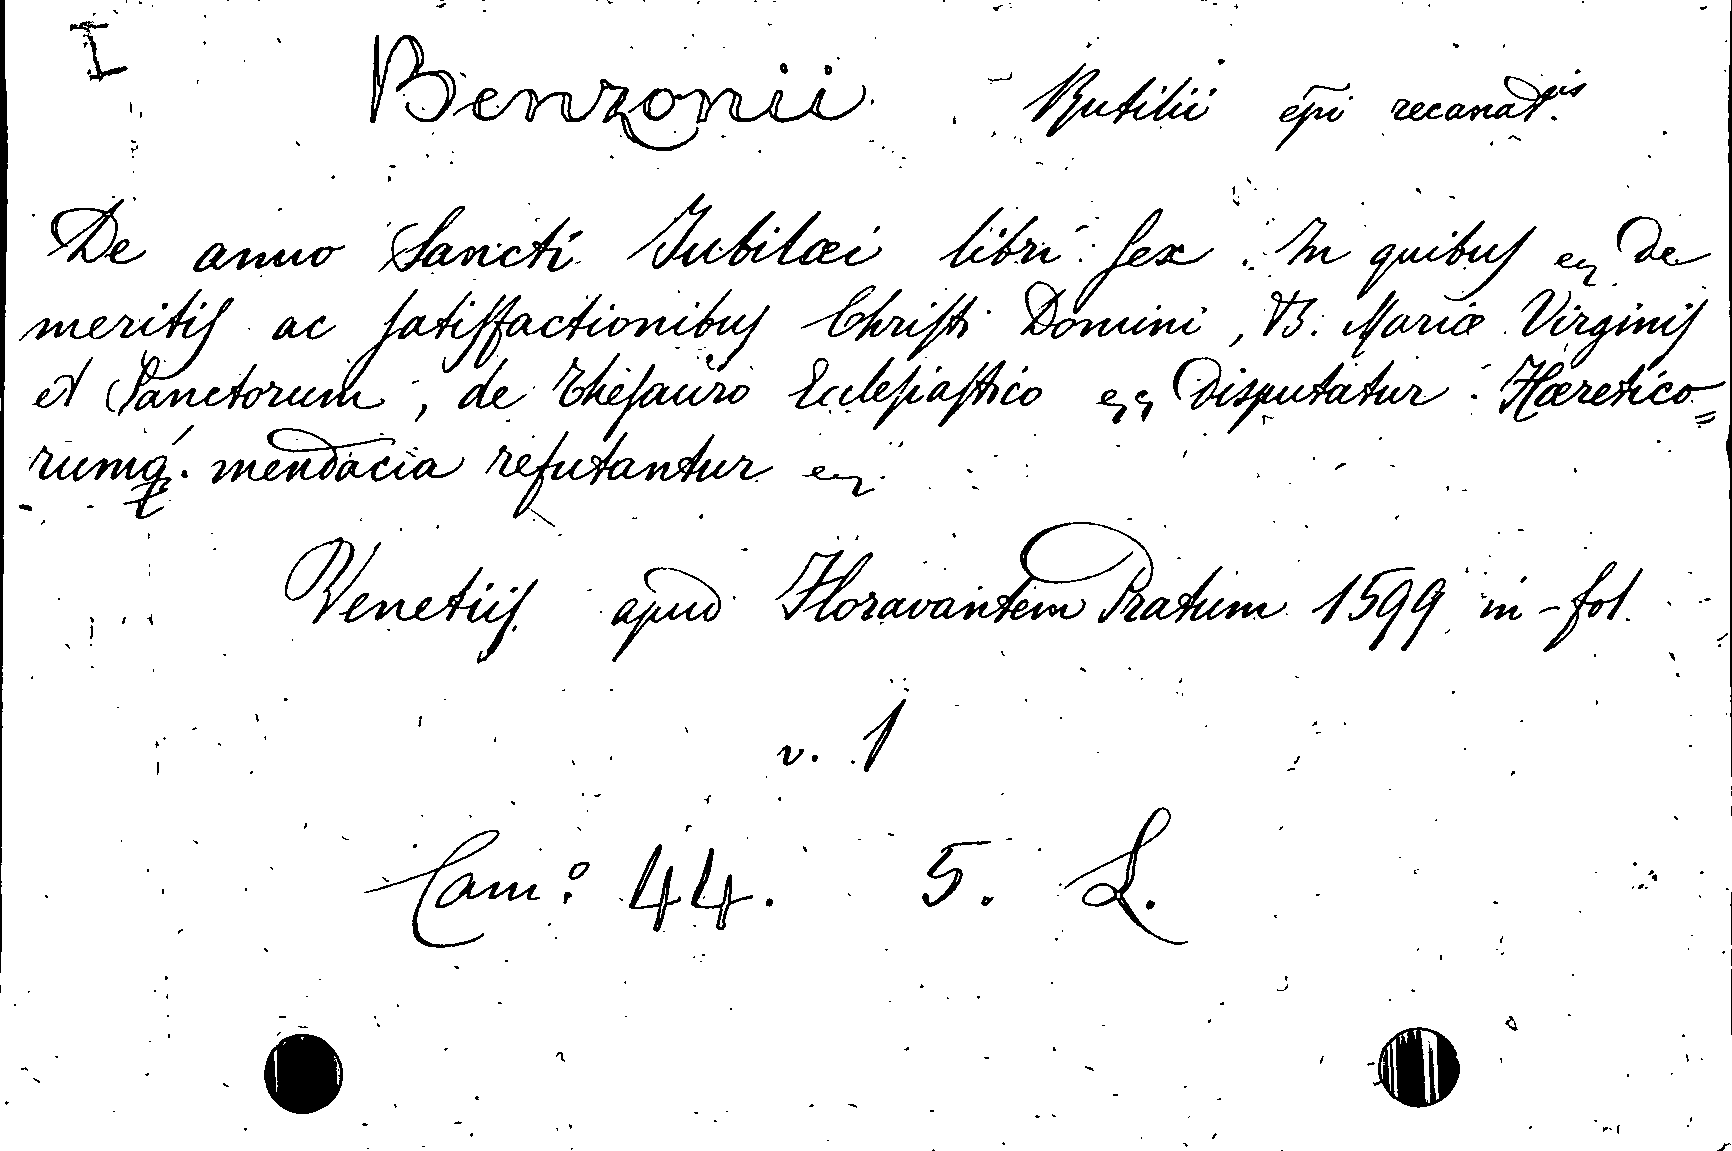 I
Benzonii Rutilii ep̄i recanat.is
De anno Sancti Jubilæi libri sex. In quibus ec̨ de
meritis ac satisfactionibus Christi Domini, B. Mariæ Virginis
et Sanctorum, de thesauro Ecclesiastico ec̨c̨ disputatur. Hæretico=
rumq́. mendacia refutantur ec̨
Venetiis apud Floravantem Pratum 1599 in-fol.
v. 1
Cam: 44. 5. L.